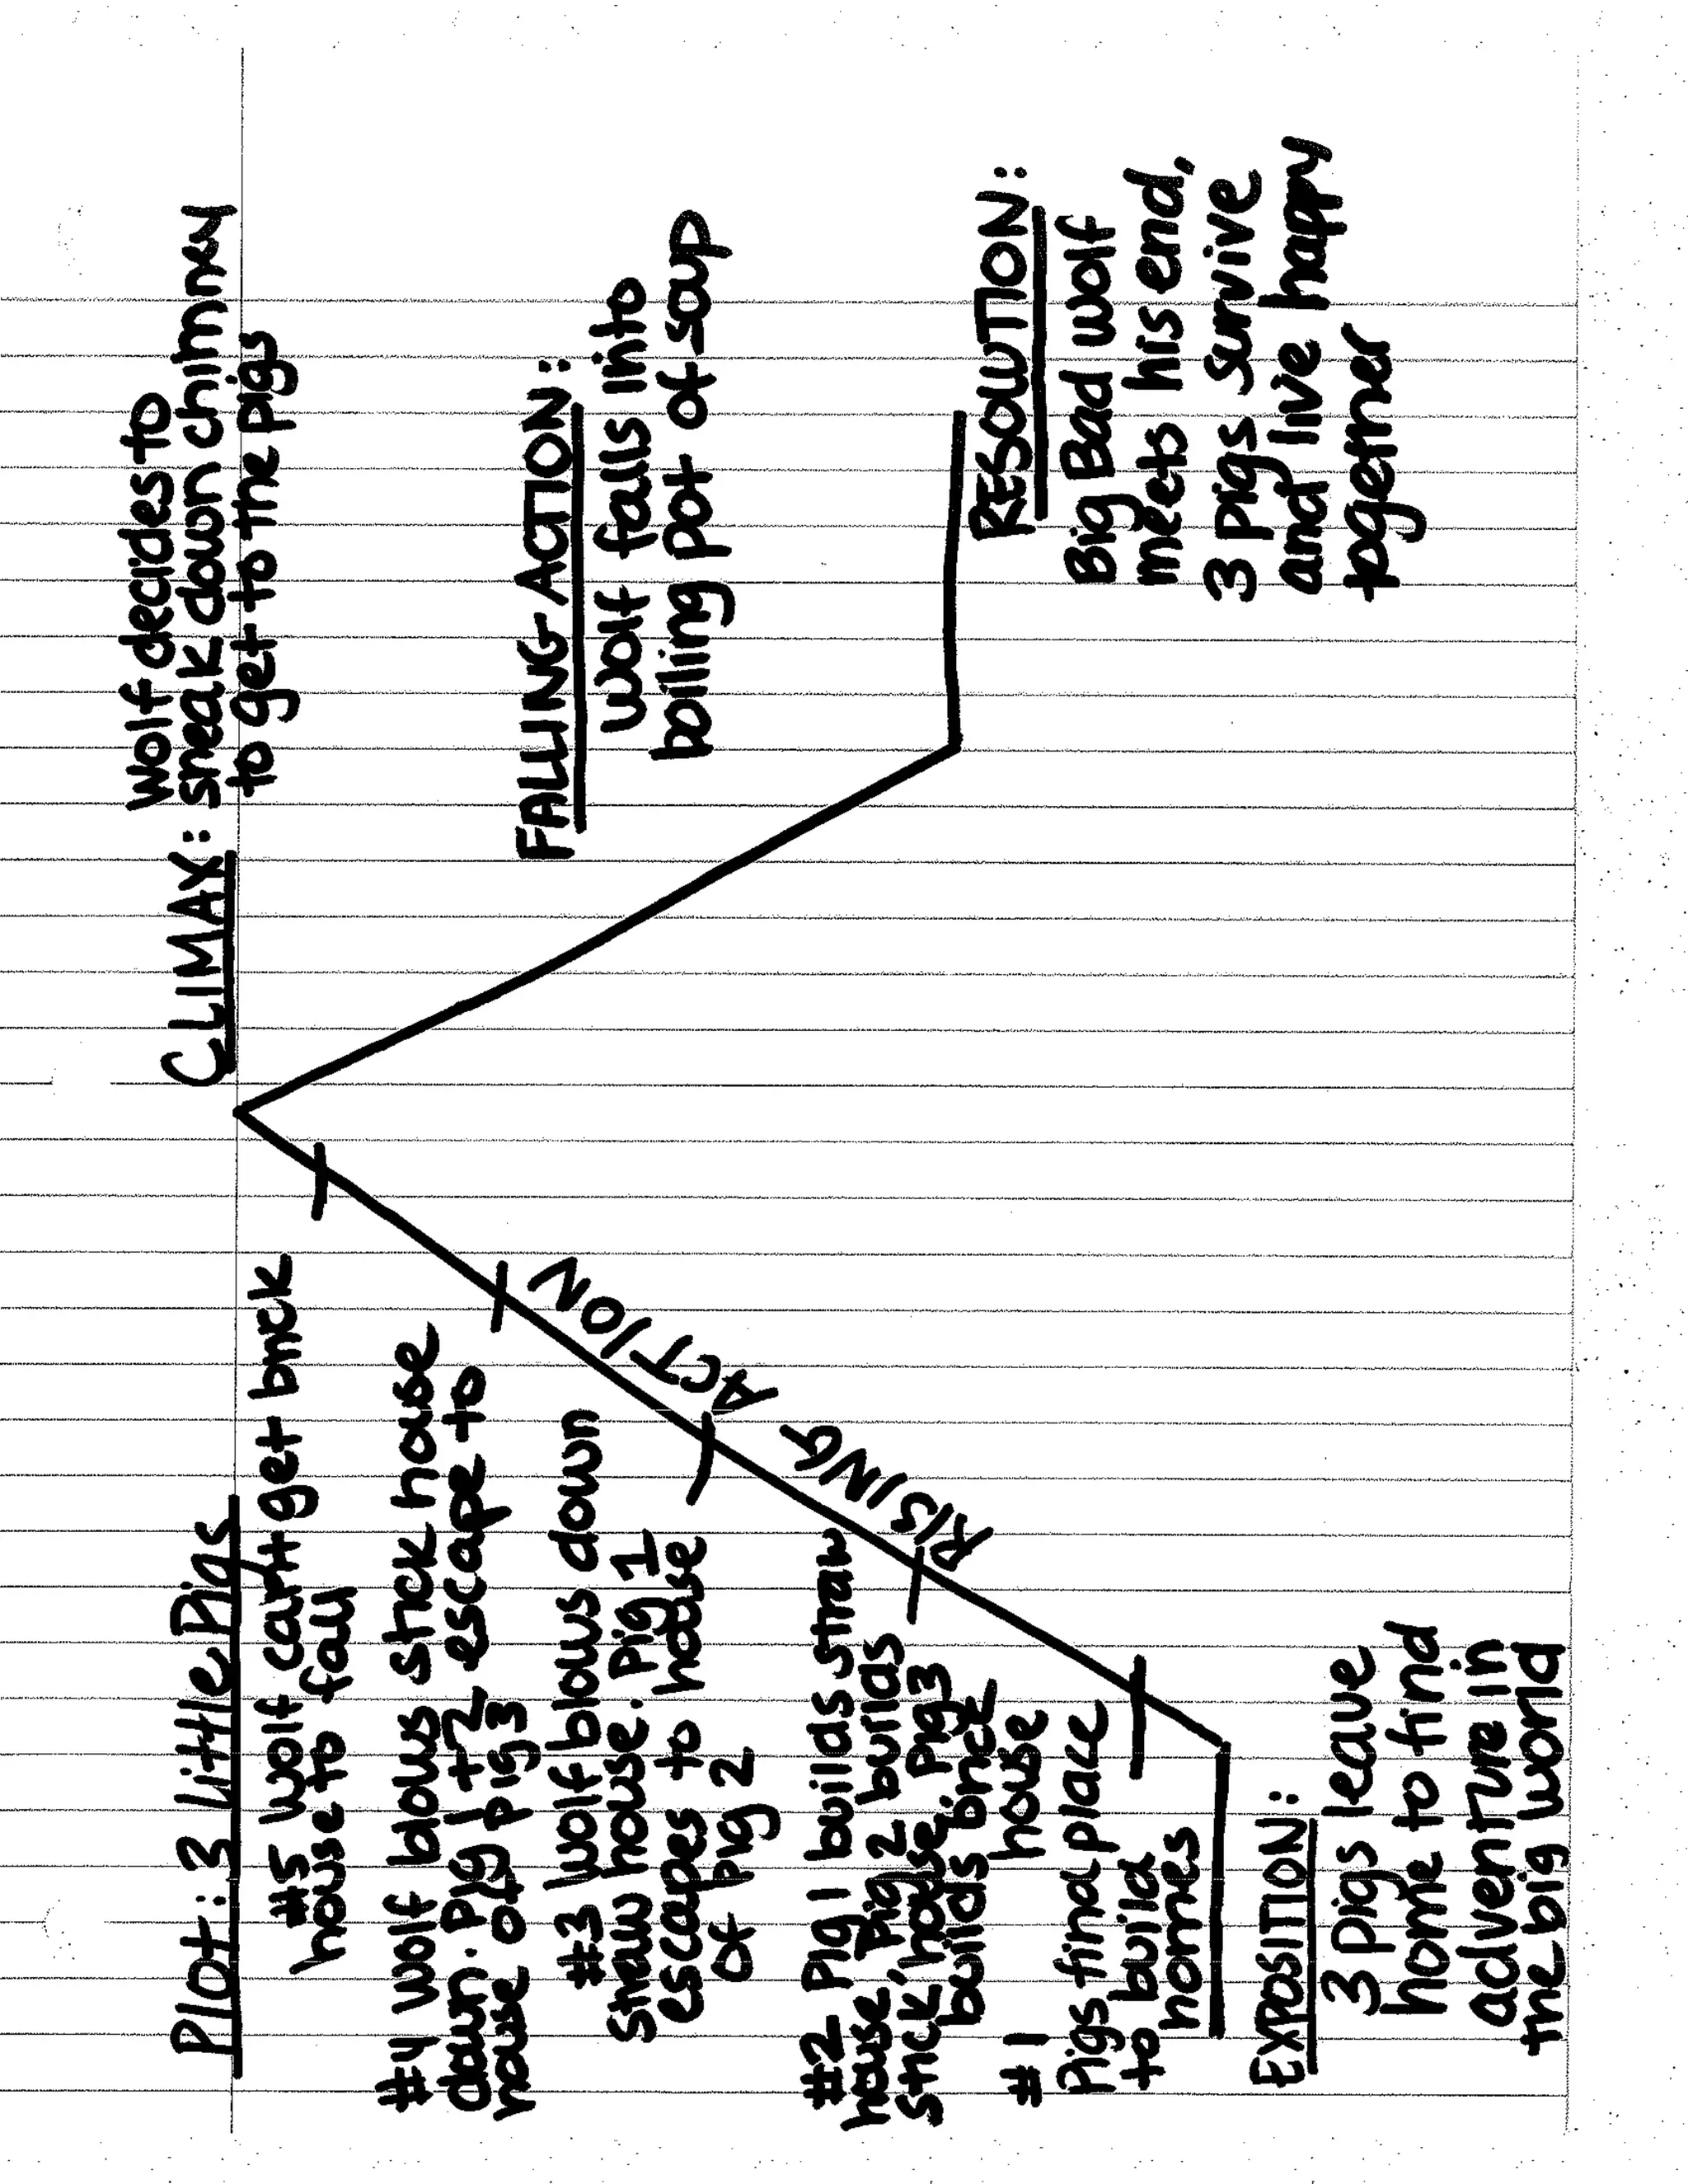 Plot: 3 Little Pigs
#5 wolf can't get brick
house to fall
#4 wolf blows stick house
down. Pig 1 + 2 escape to
house of pig 3
#3 wolf blows down
straw house. Pig 1
escapes to house
of pig 2
#2 Pig 1 builds straw
house, Pig 2 builds
stick house, Pig 3
builds brick
house
#1
Pigs find place
to build
homes
RISING ACTION
EXPOSITION:
3 pigs leave
home to find
adventure in
the big world
CLIMAX: wolf decides to
sneak down chimney
to get to the pigs
FALLING ACTION:
wolf falls into
boiling pot of soup
RESOLUTION:
Big Bad wolf
meets his end,
3 pigs survive
and live happy
together